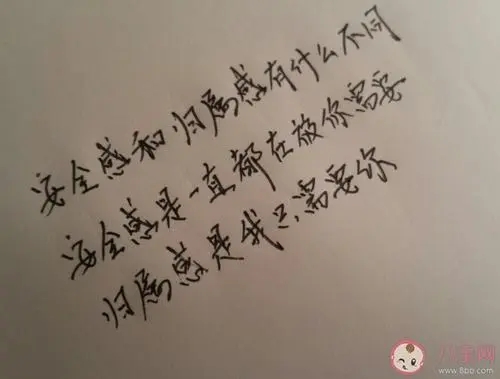 安全感和归属感有什么不同
安全感是一直都在被你需要
归属感是我只需要你
八宝网
www.8bb.com